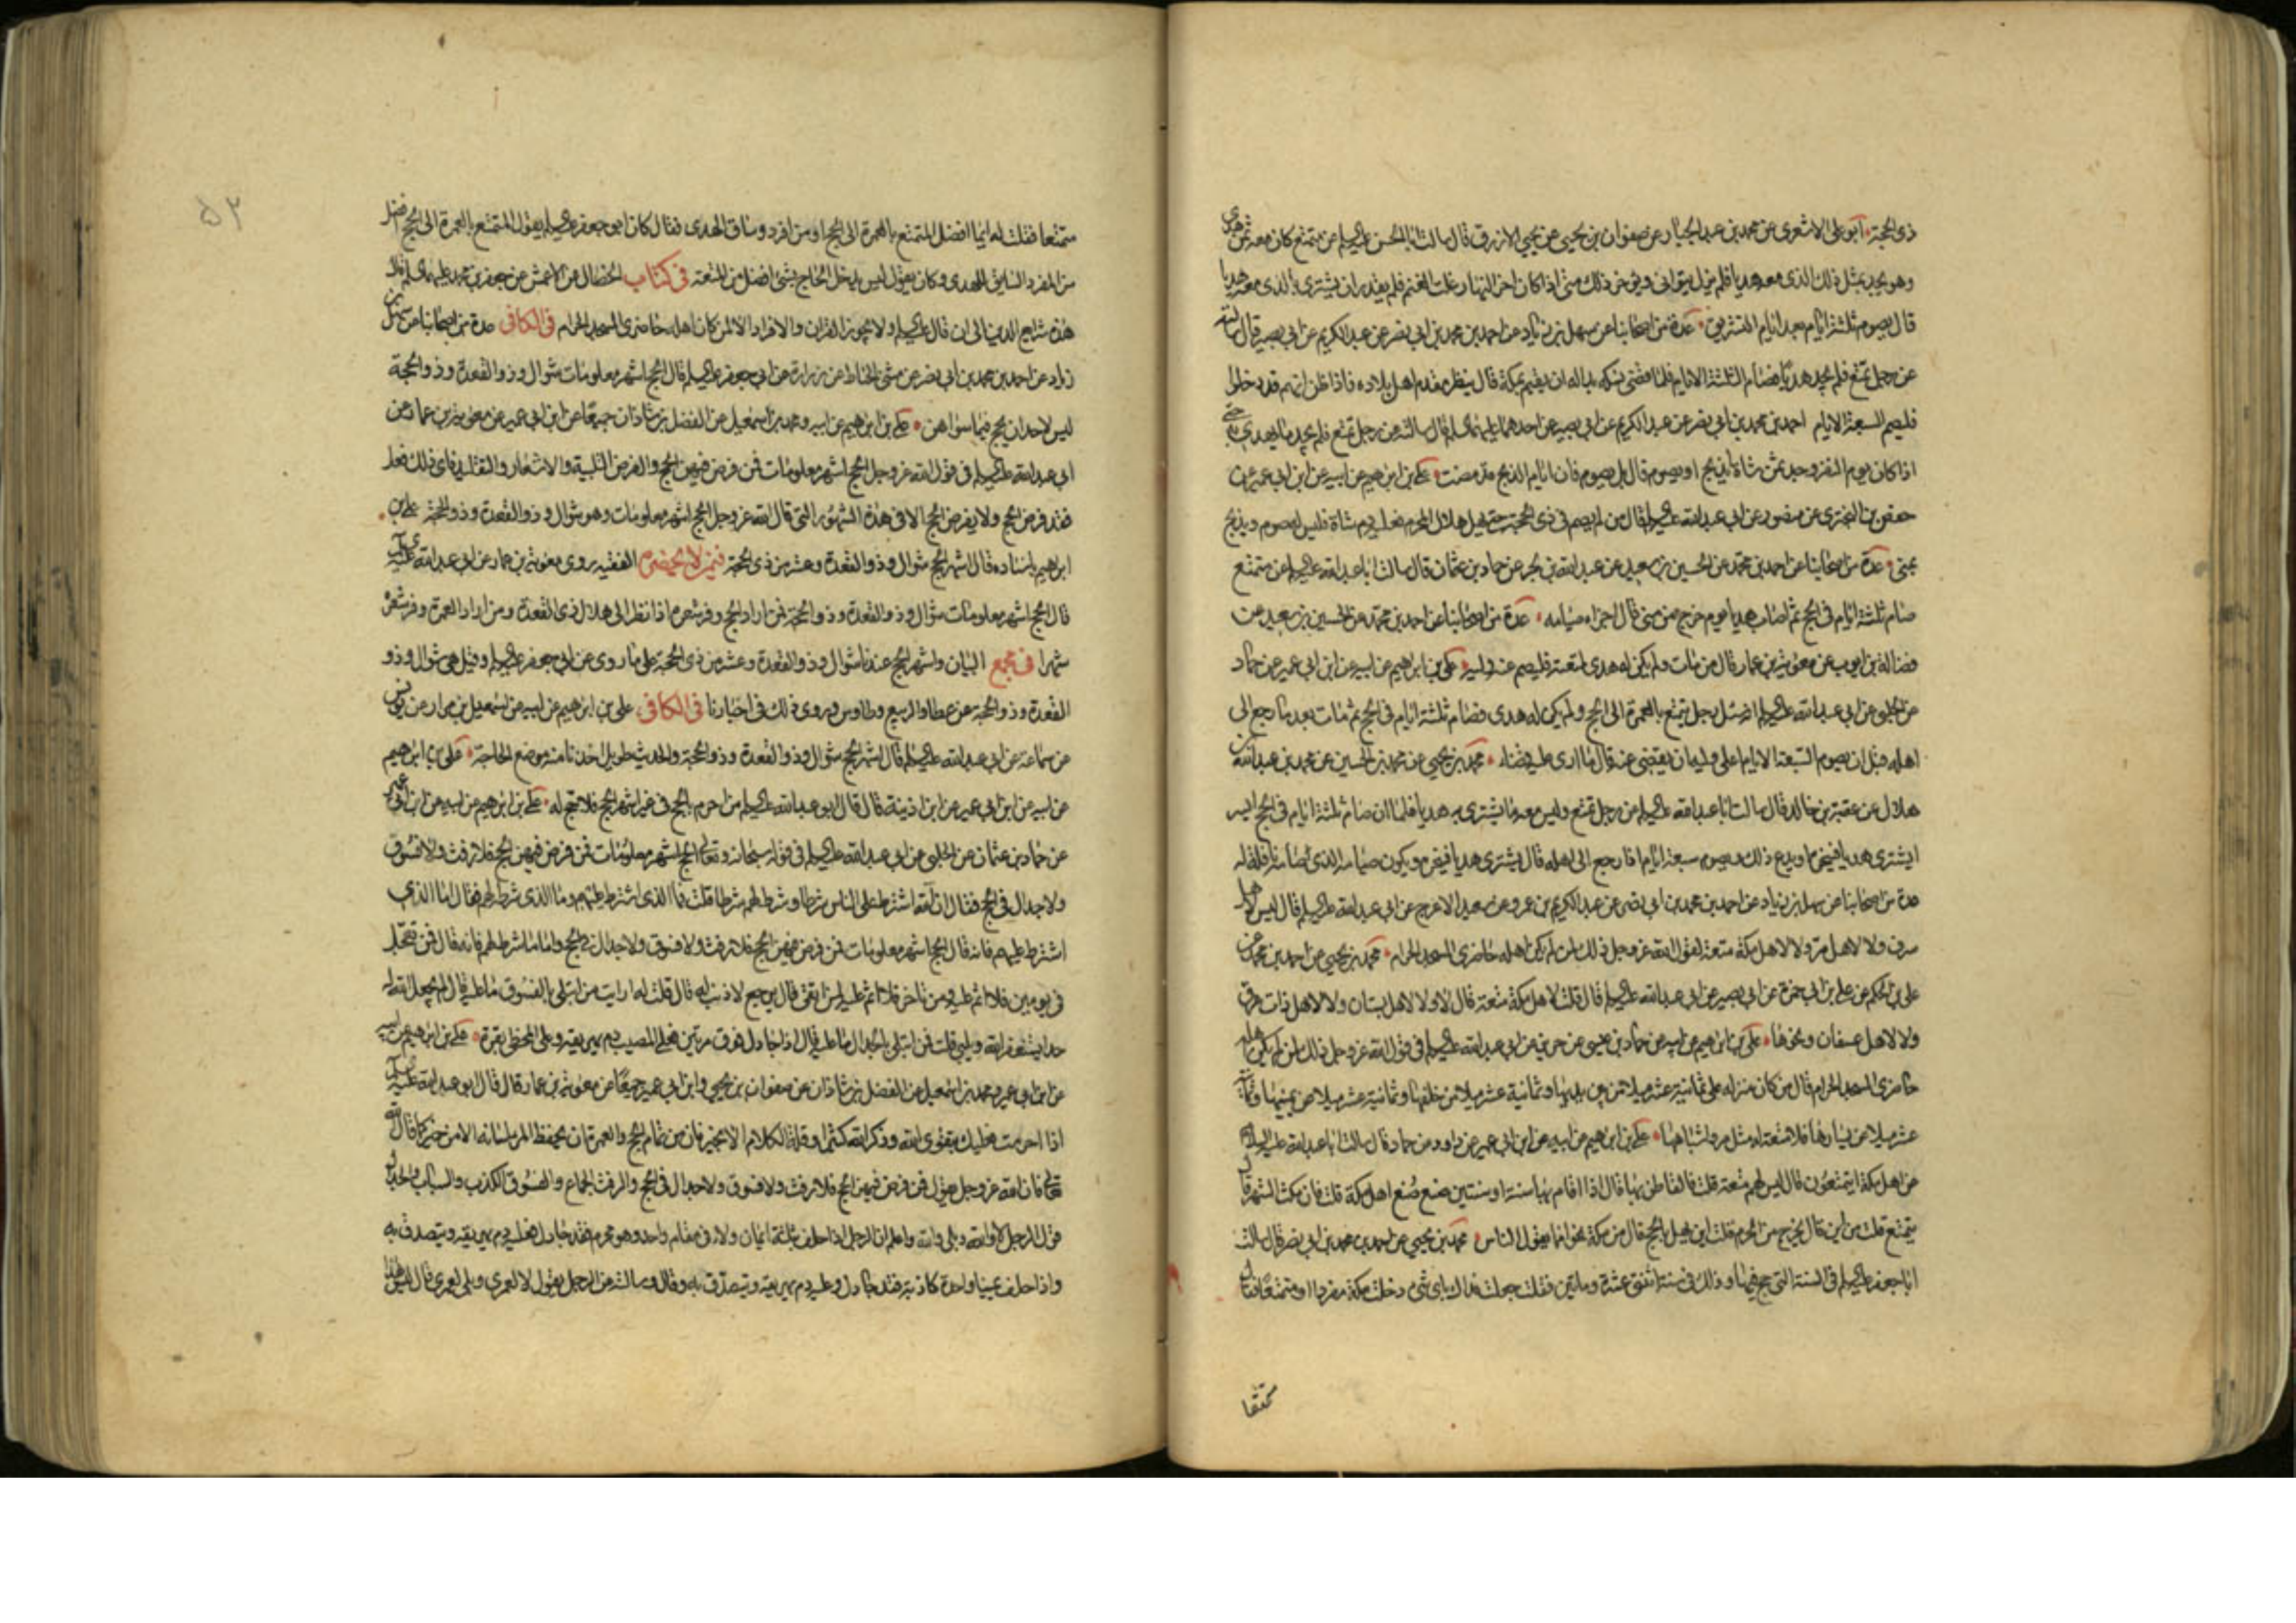 ذى الحجة ابو على الاشعرى عن محمد بن عبد الجبار عن صفوان بن يحيى عن يحيى الازرق قال سالت ابا الحسن عليه السلم عن متمتع كان معه ثمن هدى
وهو يجد بمثل ذلك الذى معه هديا فلم يزل يتوانى ويؤخر ذلك حتى اذا كان اخر النهار غلت الغنم فلم يقدر ان يشترى بالذى معه هديا
قال يصوم ثلثة ايام بعد ايام التشريق عدة من اصحابنا عن سهل بن زياد عن احمد بن محمد بن ابى نصر عن عبد الكريم عن ابى بصير قال سالته
عن رجل تمتع فلم يجد هديا فصام الثلثة الايام فلما قضى نسكه بدا له ان يقيم بمكة قال ينظر مقدم اهل بلاده فاذا ظن انهم قد دخلوا
فليصم السبعة الايام احمد بن محمد بن ابى نصر عن عبد الكريم عن ابى بصير عن احدهما عليهما السلم قال سالته عن رجل تمتع فلم يجد ما يهدى حتى
اذا كان يوم النفر وجد ثمن شاة ايذبح او يصوم قال بل يصوم فان ايام الذبح قد مضت على بن ابرهيم عن ابيه عن ابن ابى عمير عن
حفص بن البخترى عن منصور عن ابى عبد الله عليه السلم قال من لم يصم فى ذى الحجة حتى يهل هلال المحرم فعليه دم شاة فليس له صوم ويذبح
بمنى عدة من اصحابنا عن احمد بن محمد عن الحسين بن سعيد عن عبد الله بن بحر عن حماد بن عثمان قال سالت ابا عبد الله عليه السلم عن متمتع
صام ثلثة ايام فى الحج ثم اصاب هديا يوم خرج من منى قال اجزاه صيامه عدة من اصحابنا عن احمد بن محمد عن الحسين بن سعيد عن
فضالة بن ايوب عن معوية بن عمار قال من مات ولم يكن له هدى لمتعته فليصم عنه وليه على بن ابرهيم عن ابيه عن ابن ابى عمير عن حماد
عن الحلبى عن ابى عبد الله عليه السلم انه سئل عن رجل يتمتع بالعمرة الى الحج ولم يكن له هدى فصام ثلثة ايام فى الحج ثم مات بعد ما رجع الى
اهله قبل ان يصوم السبعة الايام اعلى وليه ان يقضى عنه قال ما ارى عليه قضاء محمد بن يحيى عن محمد بن الحسين عن محمد بن عبد الله بن
هلال عن عقبة بن خالد قال سالت ابا عبد الله عليه السلم عن رجل تمتع وليس معه ما يشترى به هديا فلما ان صام ثلثة ايام فى الحج ايسر
ايشترى هديا فينحره او يدع ذلك ويصوم سبعة ايام اذا رجع الى اهله قال يشترى هديا فينحره ويكون صيامه الذى صامه نافلة له
عدة من اصحابنا عن سهل بن زياد عن احمد بن محمد بن ابى نصر عن عبد الكريم بن عمرو عن سعيد الاعرج عن ابى عبد الله عليه السلم قال ليس لاهل
سرف ولا لاهل مر ولا لاهل مكة متعة لقول الله عز وجل ذلك لمن لم يكن اهله حاضرى المسجد الحرام محمد بن يحيى عن احمد بن محمد عن
على بن الحكم عن على بن ابى حمزة عن ابى بصير عن ابى عبد الله عليه السلم قال قلت لاهل مكة متعة قال لا ولا لاهل بستان ولا لاهل ذات عرق
ولا لاهل عسفان ونحوها على بن ابرهيم عن ابيه عن حماد بن عيسى عن حريز عن ابى عبد الله عليه السلم فى قول الله عز وجل ذلك لمن لم يكن اهله
حاضرى المسجد الحرام قال من كان منزله على ثمانية عشر ميلا من بين يديها وثمانية عشر ميلا من خلفها وثمانية عشر ميلا عن يمينها وثمانية
عشر ميلا عن يسارها فلا متعة له مثل مر واشباهها على بن ابرهيم عن ابيه عن ابن ابى عمير عن داود عن حماد قال سالت ابا عبد الله عليه السلم
عن اهل مكة ايتمتعون قال ليس لهم متعة قلت فالقاطن بها قال اذا اقام بها سنة او سنتين صنع صنع اهل مكة قلت فان مكث الشهر قال
يتمتع قلت من اين قال يخرج من الحرم قلت اين يهل بالحج قال من مكة نحوا مما يقول الناس محمد بن يحيى عن احمد بن محمد بن ابى نصر قال سالت
ابا جعفر عليه السلم فى السنة التى حج فيها وذلك فى سنة اثنتى عشرة وماتين فقلت جعلت فداك باى شى دخلت مكة مفردا او متمتعا فقال
متمتعا
متمتعا فقلت له ايما افضل المتمتع بالعمرة الى الحج او من افرد وساق الهدى فقال كان ابو جعفر عليه السلم يقول المتمتع بالعمرة الى الحج افضل
من المفرد السايق للهدى وكان يقول ليس يدخل الحاج بشئ افضل من المتعة فى كتاب الخصال عن الاعمش عن جعفر بن محمد عليهما السلم قال
هذه شرايع الدين الى ان قال عليه السلم ولا يجوز القران والافراد الا لمن كان اهله حاضرى المسجد الحرام فى الكافى عدة من اصحابنا عن سهل بن
زياد عن احمد بن محمد بن ابى نصر عن مثنى الحناط عن زرارة عن ابى جعفر عليه السلم قال الحج اشهر معلومات شوال وذو القعدة وذو الحجة
ليس لاحد ان يحج فيما سواهن على بن ابرهيم عن ابيه ومحمد بن اسمعيل عن الفضل بن شاذان جميعا عن ابن ابى عمير عن معوية بن عمار عن
ابى عبد الله عليه السلم فى قول الله عز وجل الحج اشهر معلومات فمن فرض فيهن الحج والفرض التلبية والاشعار والتقليد فاى ذلك فعل
فقد فرض الحج ولا يفرض الحج الا فى هذه الشهور التى قال الله عز وجل الحج اشهر معلومات وهو شوال وذو القعدة وذو الحجة على بن
ابرهيم باسناده قال اشهر الحج شوال وذو القعدة وعشر من ذى الحجة فيمن لا يحضره الفقيه روى معوية بن عمار عن ابى عبد الله عليه السلم
قال الحج اشهر معلومات شوال وذو القعدة وذو الحجة فمن اراد الحج وفر شعره اذا نظر الى هلال ذى القعدة ومن اراد العمرة وفر شعره
شهرا فى مجمع البيان واشهر الحج عندنا شوال وذو القعدة وعشر من ذى الحجة على ما روى عن ابى جعفر عليه السلم وقيل هى شوال وذو
القعدة وذو الحجة عن عطا والربيع وطاوس وروى ذلك فى اخبارنا فى الكافى على بن ابرهيم عن ابيه عن اسمعيل بن مرار عن يونس
عن سماعة عن ابى عبد الله عليه السلم قال اشهر الحج شوال وذو القعدة وذو الحجة والحديث طويل اخذنا منه موضع الحاجة على بن ابرهيم
عن ابيه عن ابن ابى عمير عن ابن اذينة قال قال ابو عبد الله عليه السلم من احرم بالحج فى غير اشهر الحج فلا حج له على بن ابرهيم عن ابيه عن ابن ابى عمير
عن حماد بن عثمان عن الحلبى عن ابى عبد الله عليه السلم فى قوله سبحانه وتعالى الحج اشهر معلومات فمن فرض فيهن الحج فلا رفث ولا فسوق
ولا جدال فى الحج فقال ان الله اشترط على الناس شرطا وشرط لهم شرطا قلت فما الذى اشترط عليهم وما الذى شرط لهم فقال اما الذى
اشترط عليهم فانه قال الحج اشهر معلومات فمن فرض فيهن الحج فلا رفث ولا فسوق ولا جدال فى الحج واما ما شرط لهم فانه قال فمن تعجل
فى يومين فلا اثم عليه ومن تاخر فلا اثم عليه لمن اتقى قال يرجع لا ذنب له قال قلت له ارايت من ابتلى بالفسوق ما عليه قال لم يجعل الله له
حدا يستغفر الله ويلبى قلت فمن ابتلى بالجدال ما عليه قال اذا جادل فوق مرتين فعلى المصيب دم يهريقه وعلى المخطى بقرة على بن ابرهيم عن ابيه
عن ابن ابى عمير ومحمد بن اسمعيل عن الفضل بن شاذان عن صفوان بن يحيى وابن ابى عمير جميعا عن معوية بن عمار قال قال ابو عبد الله عليه السلم
اذا احرمت فعليك بتقوى الله وذكر الله كثيرا وقلة الكلام الا بخير فان من تمام الحج والعمرة ان يحفظ المر لسانه الا من خير كما قال الله
تعالى فان الله عز وجل يقول فمن فرض فيهن الحج فلا رفث ولا فسوق ولا جدال فى الحج والرفث الجماع والفسوق الكذب والسباب والجدال
قول الرجل لا والله وبلى والله واعلم ان الرجل اذا حلف بثلثة ايمان ولاء فى مقام واحد وهو محرم فقد جادل فعليه دم يهريقه ويتصدق به
واذا حلف يمينا واحدة كاذبة فقد جادل وعليه دم يهريقه ويتصدق به وقال وسالته عن الرجل يقول لا لعمرى وبلى لعمرى قال ليس هذا
٥٢